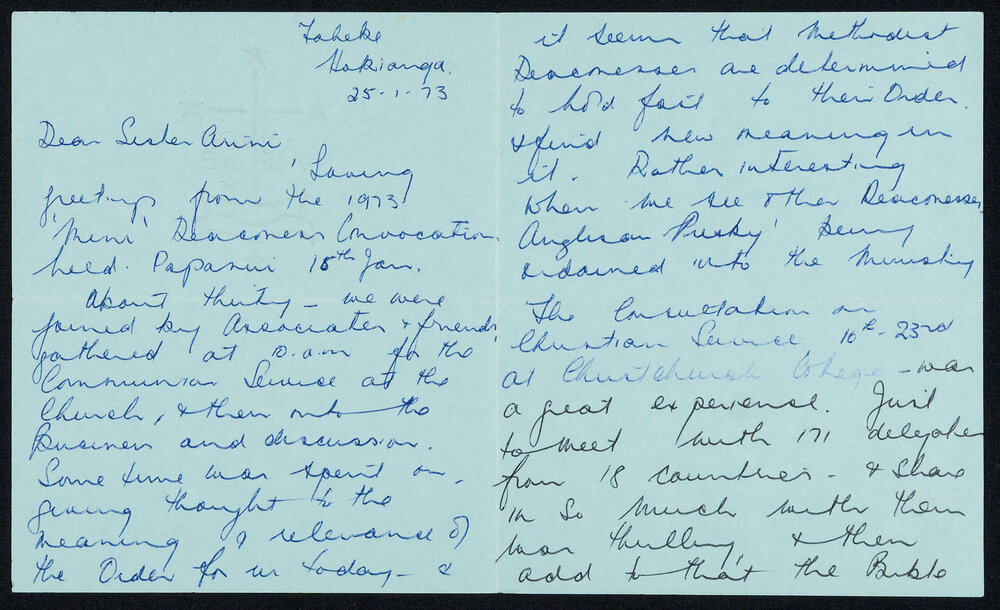 Taheke
Hokianga.
25-1-73
Dear Sister Airini,
Loving
greetings from the 1973
'Mini' Deaconess Convocation,
held. Papanui 15th Jan.
About thirty - we were
joined by Associates & friends,
gathered at 10.a.m for the
Communion Service at the
Church, & then onto the
Business and discussion.
Some time was spent on
giving thought to the
meaning & relevance of
the Order for us today - &
it seems that Methodist
Deaconesses are determined
to hold fast to their Order.
& find new meaning in
it. Rather interesting
when we see other Deaconesses,
Anglican Presby' being
ordained into the Ministry
The Consultation on
Christian Service 16th - 23rd
at Christchurch College - was
a great experience. Just
to meet with 171 delegates
from 18 countries - & share
in so much with them
was thrilling, & then
add to that the Bible